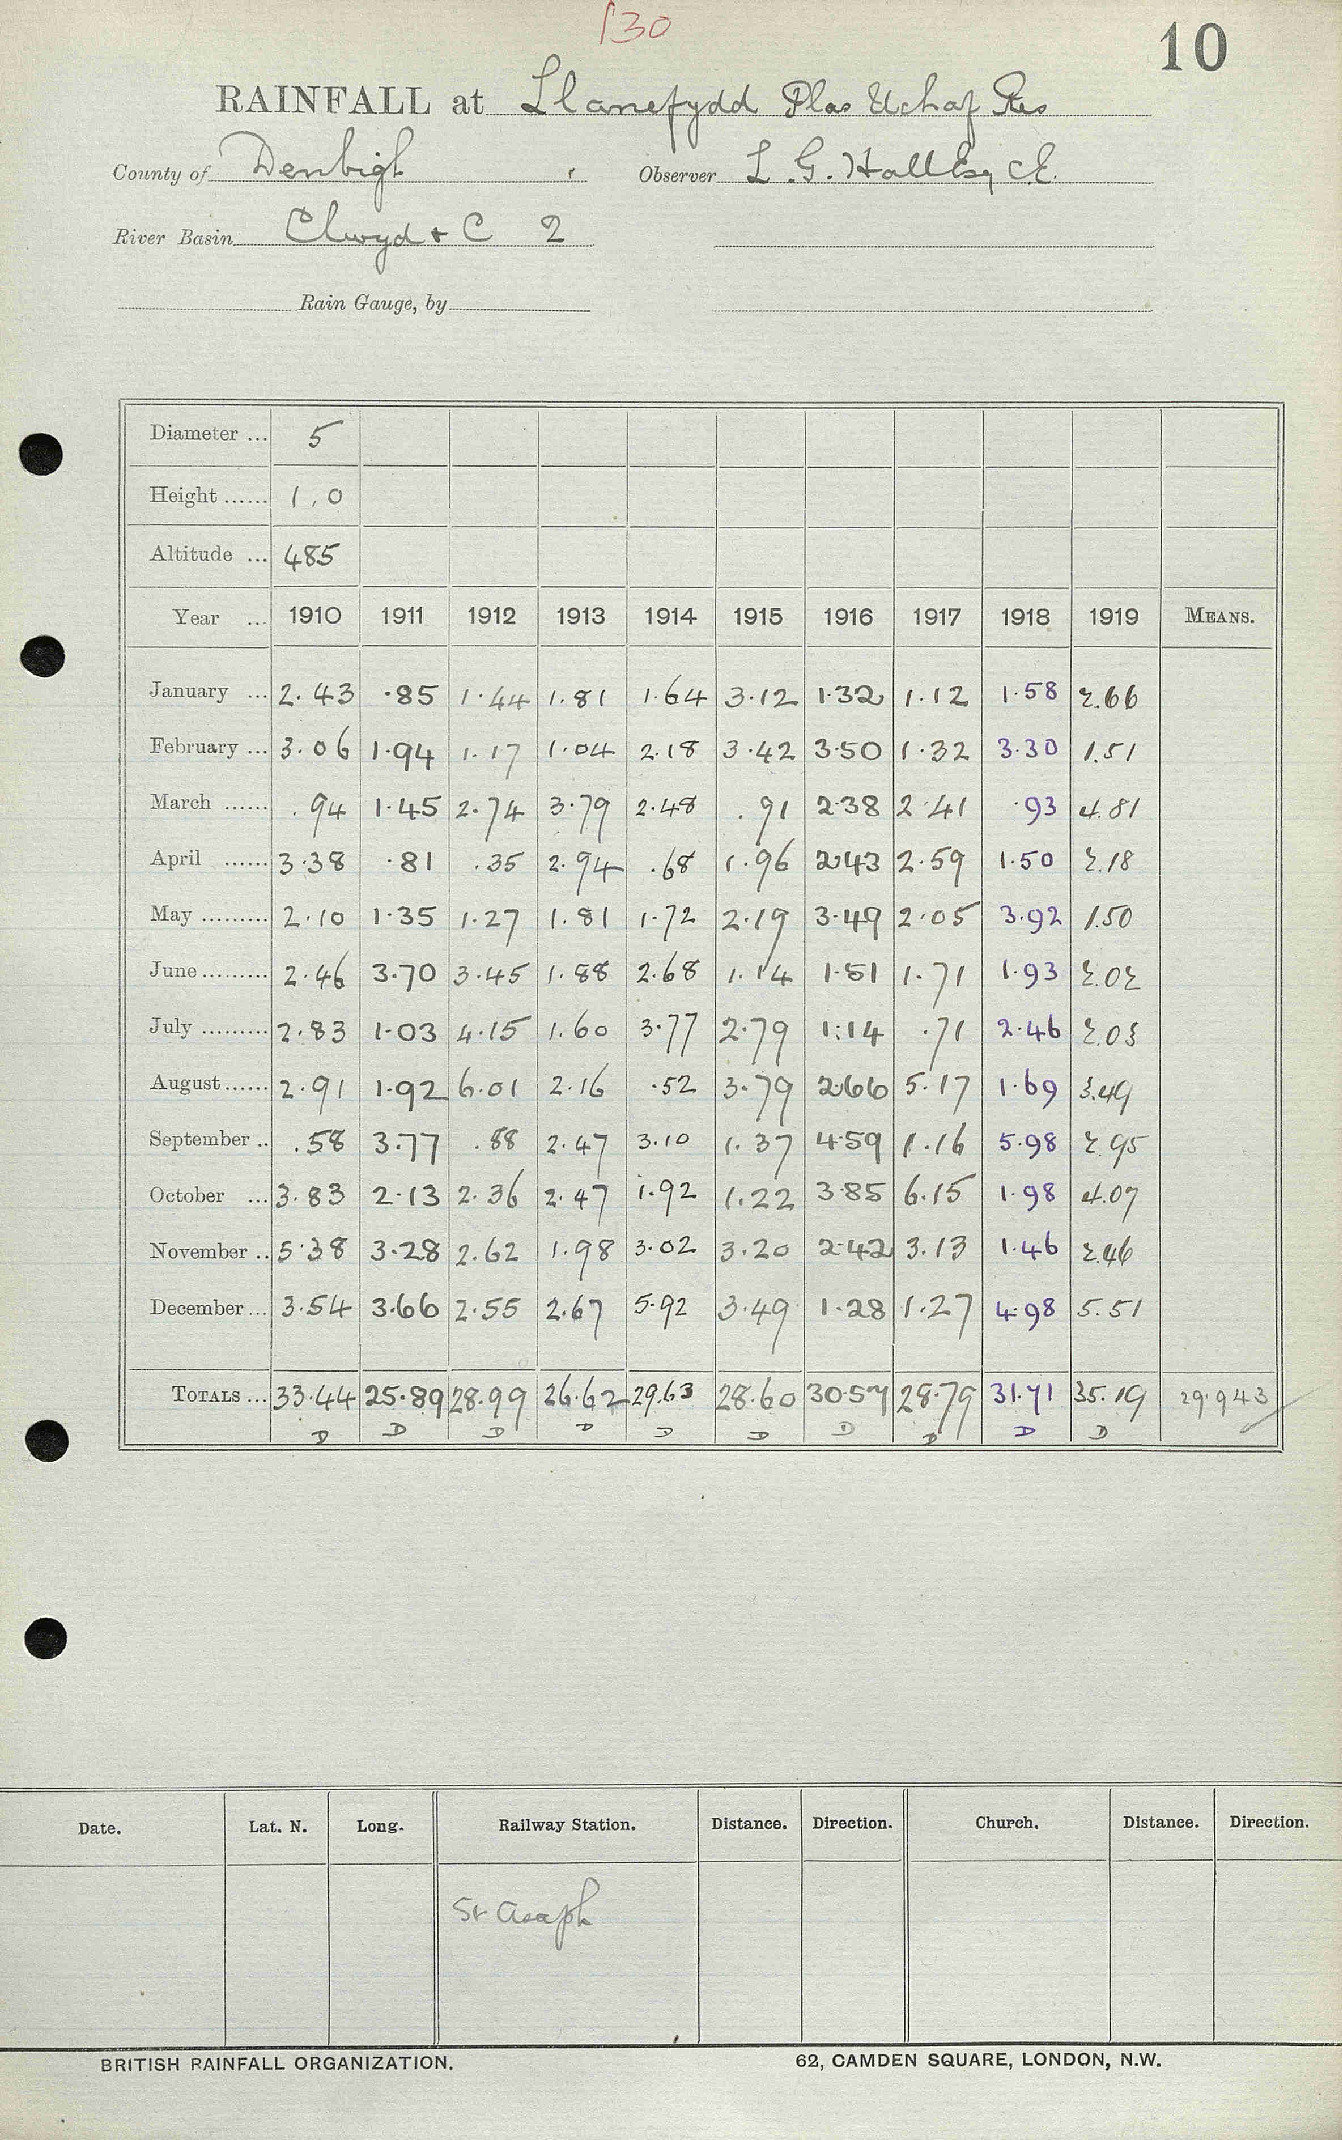 130
10
RAINFALL at Llanefydd Plas Uchaf Res
County of Denbigh Observer L. G. Hall Esq C.E.
River Basin Clwyd + C 2
Rain Gauge, by
Diameter ... 5
Height ...... 1.0
Altitude ... 485
Year ... 1910 1911 1912 1913 1914 1915 1916 1917 1918 1919 MEANS.
January ... 2.43 .85 1.44 1.81 1.64 3.12 1.32 1.12 1.58 2.66
February ... 3.06 1.94 1.17 1.04 2.18 3.42 3.50 1.32 3.30 1.51
March ...... .94 1.45 2.74 3.79 2.48 .91 2.38 2.41 .93 4.81
April ...... 3.38 .81 .35 2.94 .68 1.96 2.43 2.59 1.50 2.18
May ......... 2.10 1.35 1.27 1.81 1.72 2.19 3.49 2.05 3.92 1.50
June ......... 2.46 3.70 3.45 1.88 2.68 1.14 1.51 1.71 1.93 2.02
July ......... 2.83 1.03 4.15 1.60 3.77 2.79 1.14 .71 2.46 2.03
August ...... 2.91 1.92 6.01 2.16 .52 3.79 2.66 5.17 1.69 3.49
September .. .58 3.77 .88 2.47 3.10 1.37 4.59 1.16 5.98 2.95
October ... 3.83 2.13 2.36 2.47 1.92 1.22 3.85 6.15 1.98 4.07
November .. 5.38 3.28 2.62 1.98 3.02 3.20 2.42 3.13 1.46 2.46
December ... 3.54 3.66 2.55 2.67 5.92 3.49 1.28 1.27 4.98 5.51
TOTALS ... 33.44 25.89 28.99 26.62 29.63 28.60 30.57 28.79 31.71 35.19 29.943
D D D D D D D D D D
Date. Lat. N. Long. Railway Station. Distance. Direction. Church. Distance. Direction.
St Asaph
BRITISH RAINFALL ORGANIZATION. 62, CAMDEN SQUARE, LONDON, N.W.